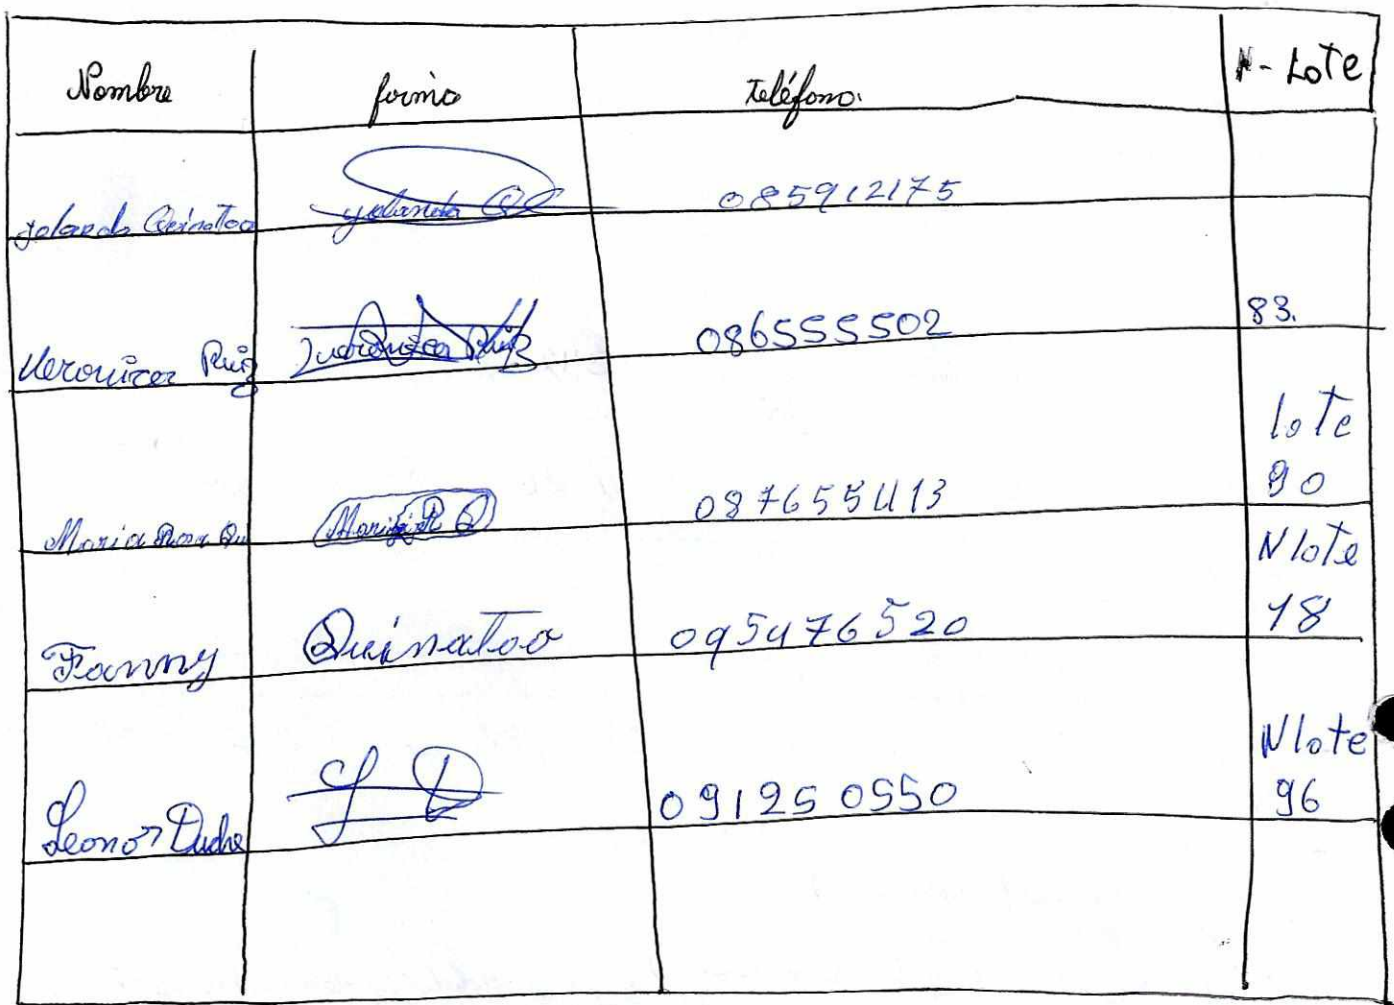 Nombre firma teléfono. N- LoTe
Yolanda Quinatoa yolanda Q 085912175
Veronica Ruiz Veronica Ruiz 086555502 83.
lote
Maria Rosa Qu Maria R Q 087655413 90
N lote
Fanny Quinatoa 095476520 18
N lote
Leonor Duche L D 091250550 96